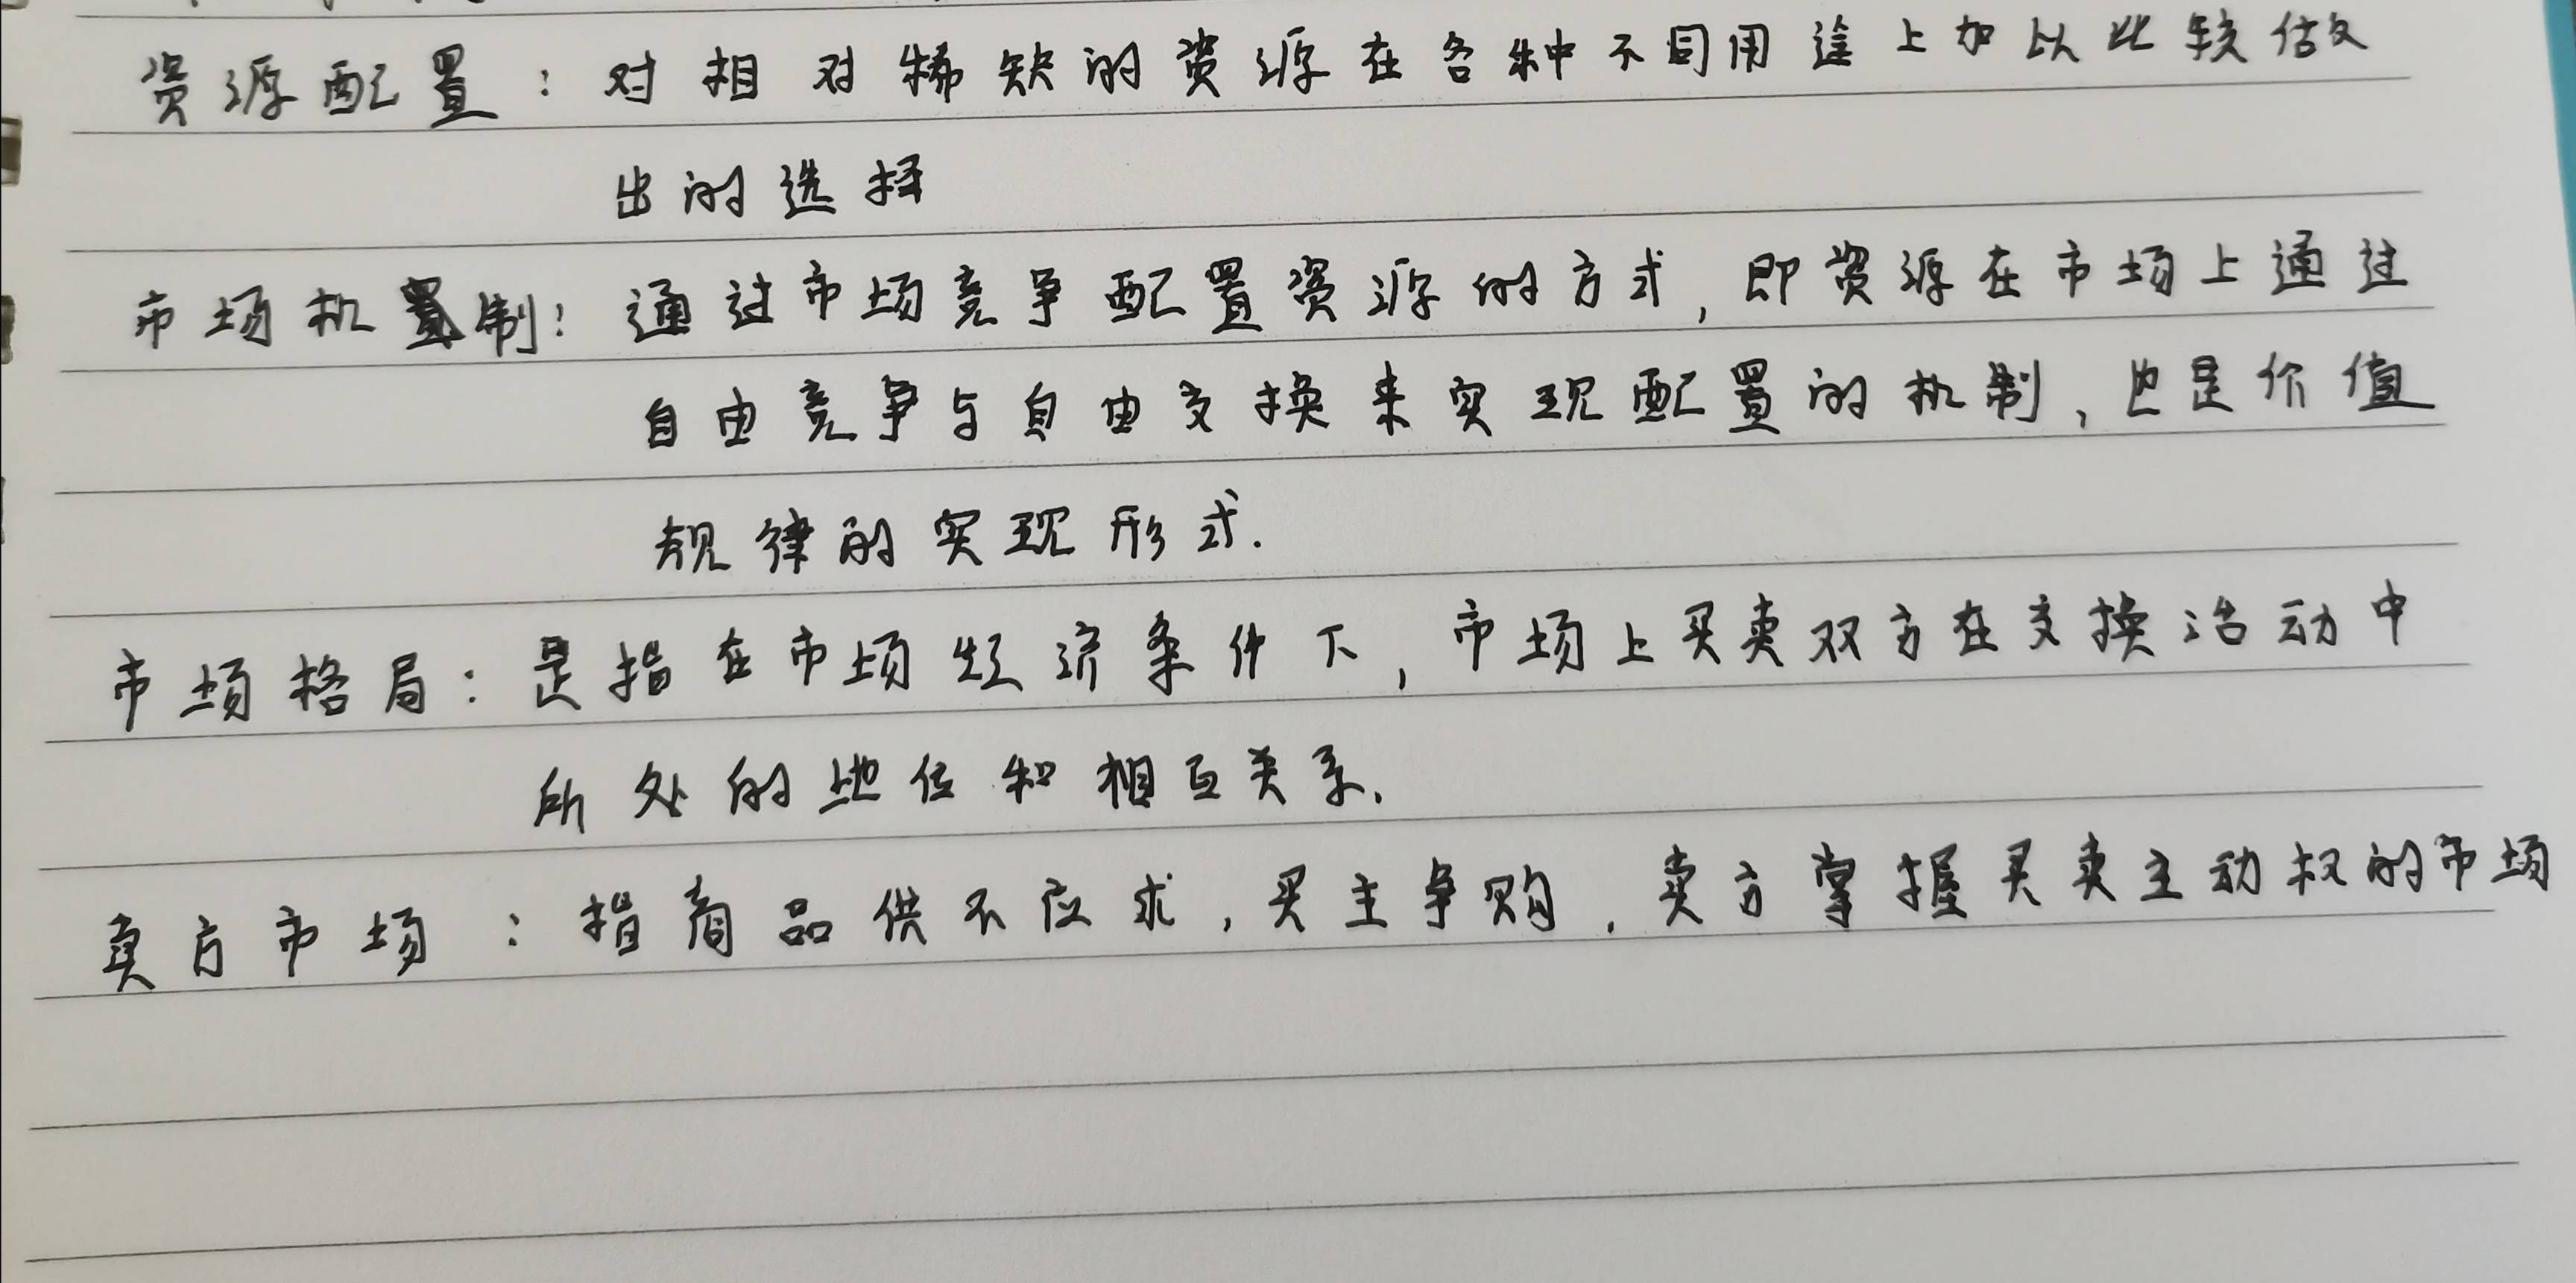 资源配置：对相对稀缺的资源在各种不同用途上加以比较做
出的选择
市场机制：通过市场竞争配置资源的方式，即资源在市场上通过
自由竞争与自由交换来实现配置的机制，也是价值
规律的实现形式.
市场格局：是指在市场经济条件下，市场上买卖双方在交换活动中
所处的地位和相互关系.
卖方市场：指商品供不应求，买主争购，卖方掌握买卖主动权的市场